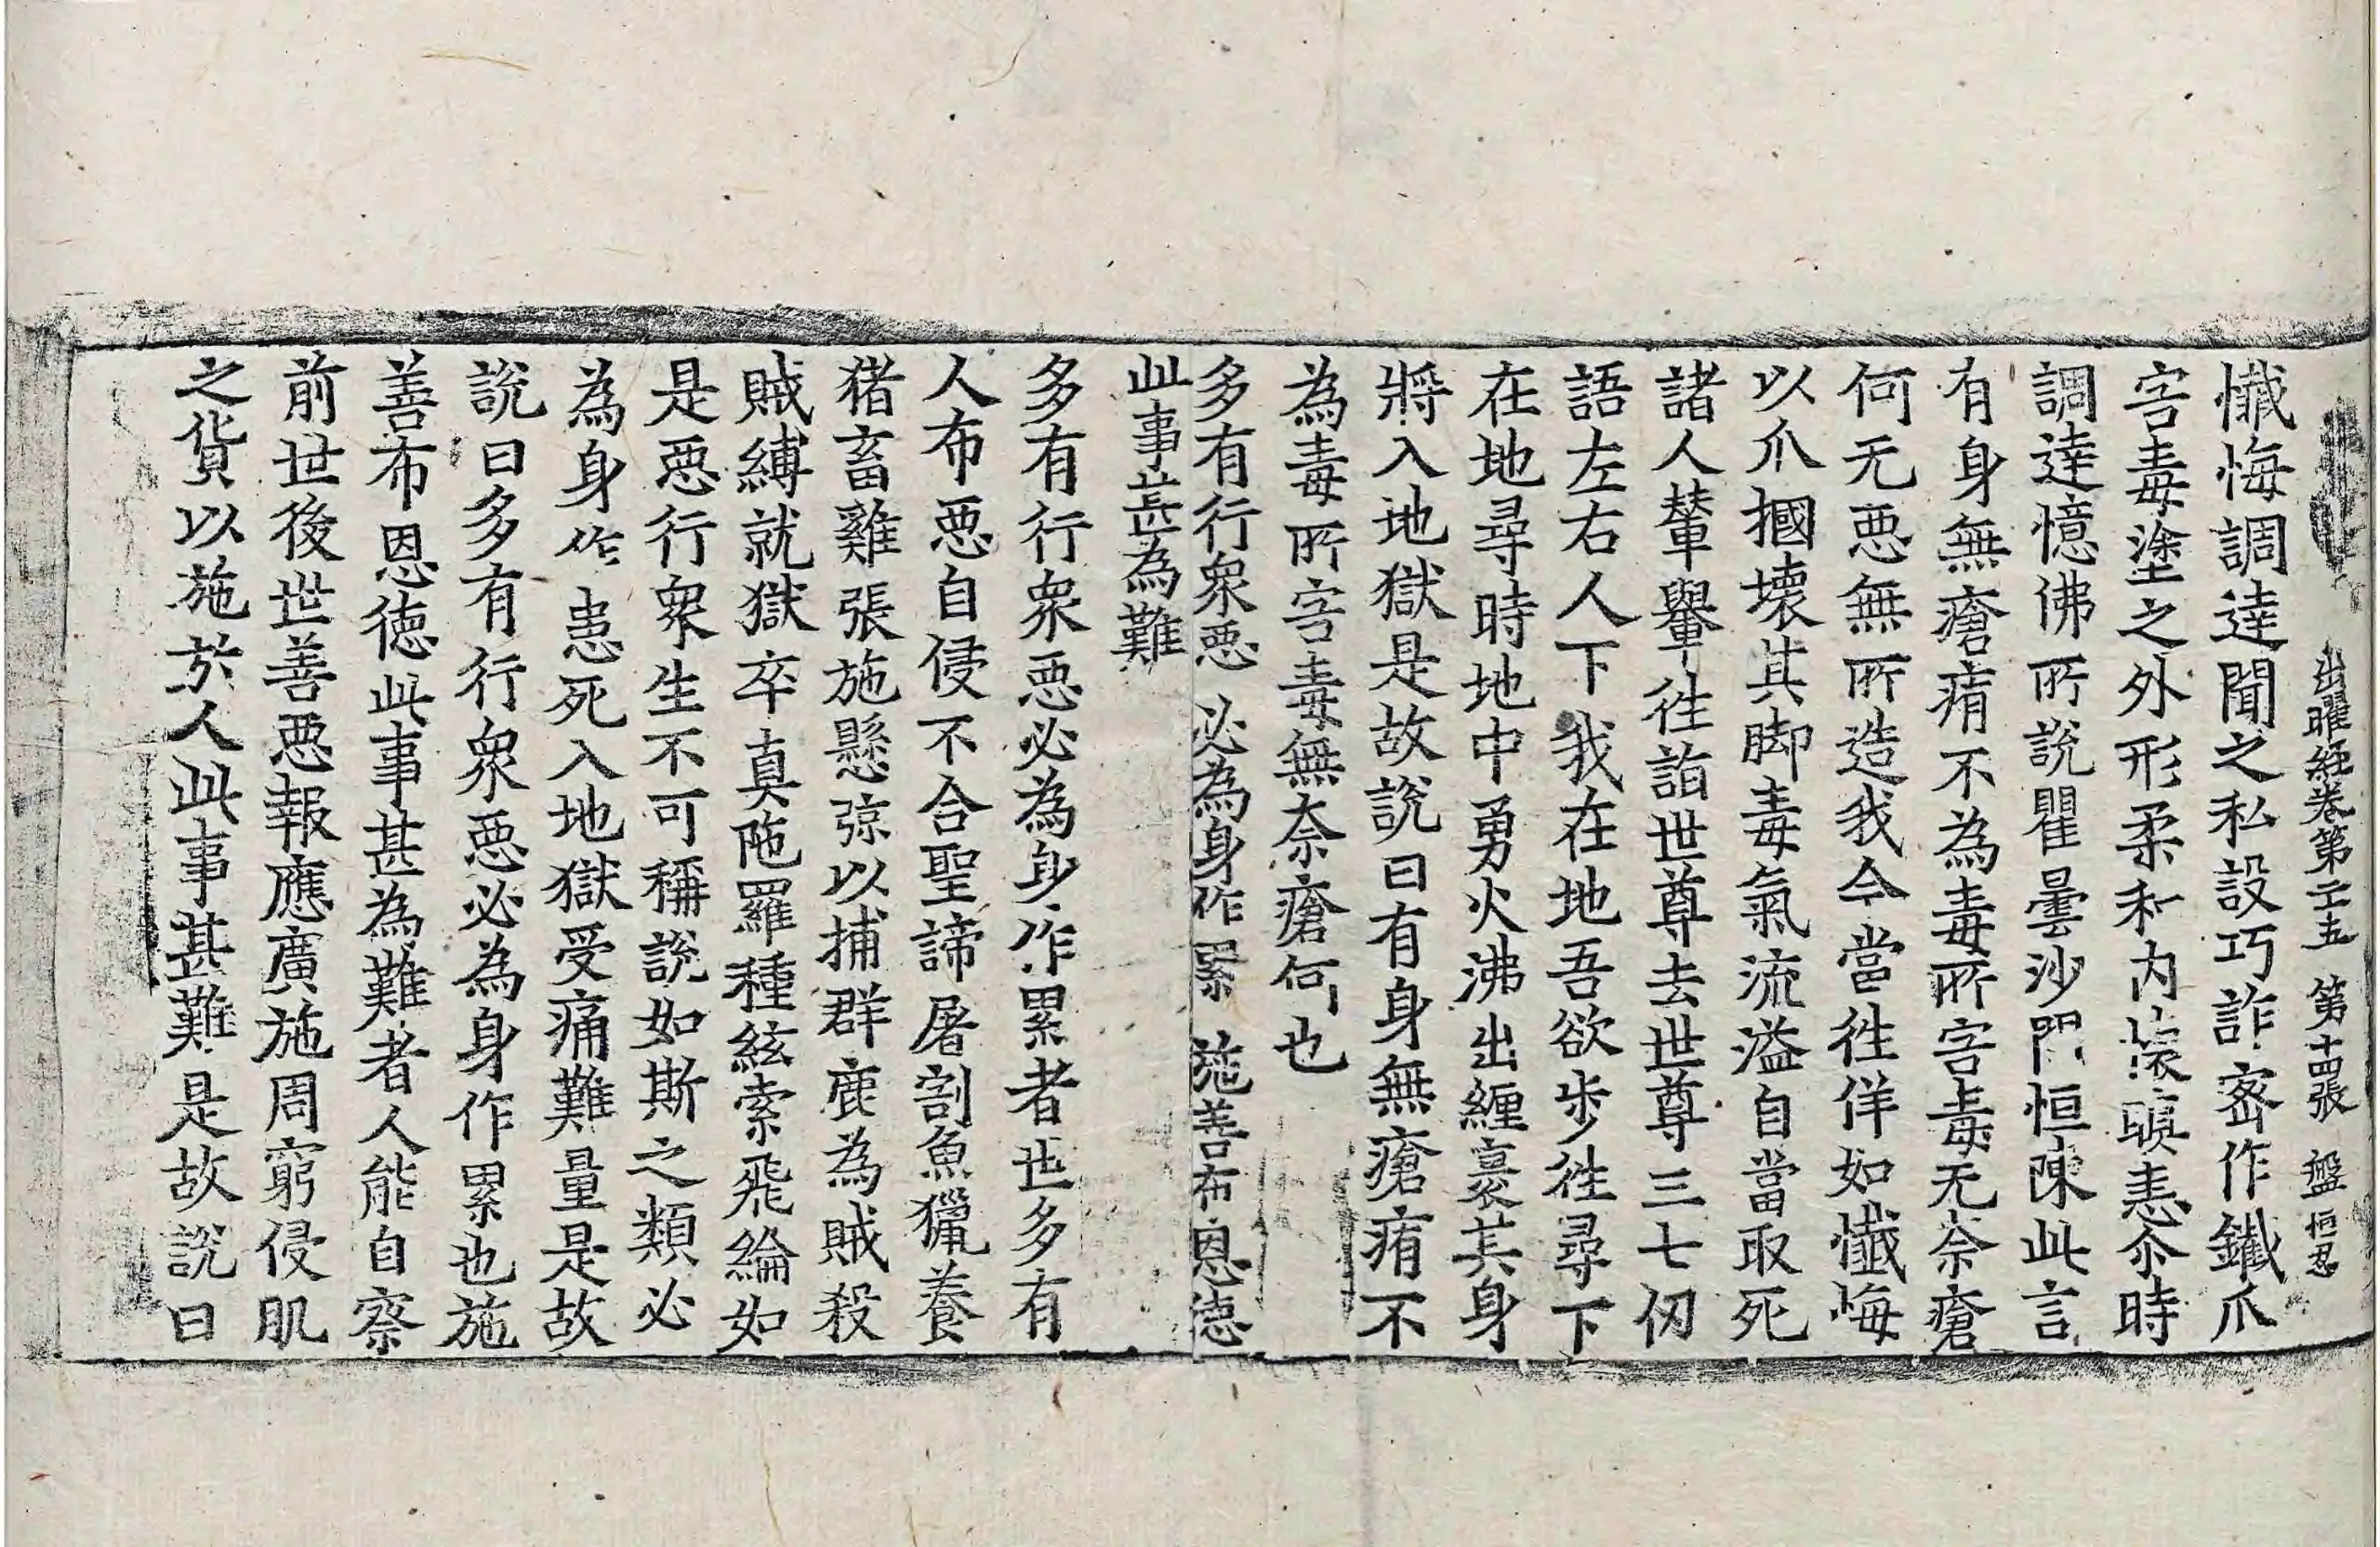 出曜經卷第十五 第十四張 盤 恒忍
懺悔調達聞之私設巧詐密作鐵爪
害毒塗之外形柔和内懷瞋恚尒時
調達憶佛所說瞿曇沙門恒陳此言
有身無瘡痏不為毒所害毒无奈瘡
何无惡無所造我今當往佯如懺悔
以爪摑壞其脚毒氣流溢自當取死
諸人輦轝往詣世尊去世尊三七仞
語左右人下我在地吾欲步往尋下
在地尋時地中勇火沸出纏裹其身
將入地獄是故說曰有身無瘡痏不
為毒所害毒無奈瘡何也
多有行衆惡 必為身作累 施善布恩德
此事甚為難
多有行衆惡必為身作累者世多有
人布惡自侵不合聖諦屠割魚獵養
猪畜雞張施懸弶以捕群鹿為賊殺
賊縛就獄卒真陁羅種絃索飛綸如
是惡行衆生不可稱說如斯之類必
為身作患死入地獄受痛難量是故
說曰多有行衆惡必為身作累也施
善布恩德此事甚為難者人能自察
前世後世善惡報應廣施周窮侵肌
之貨以施於人此事甚難是故說曰